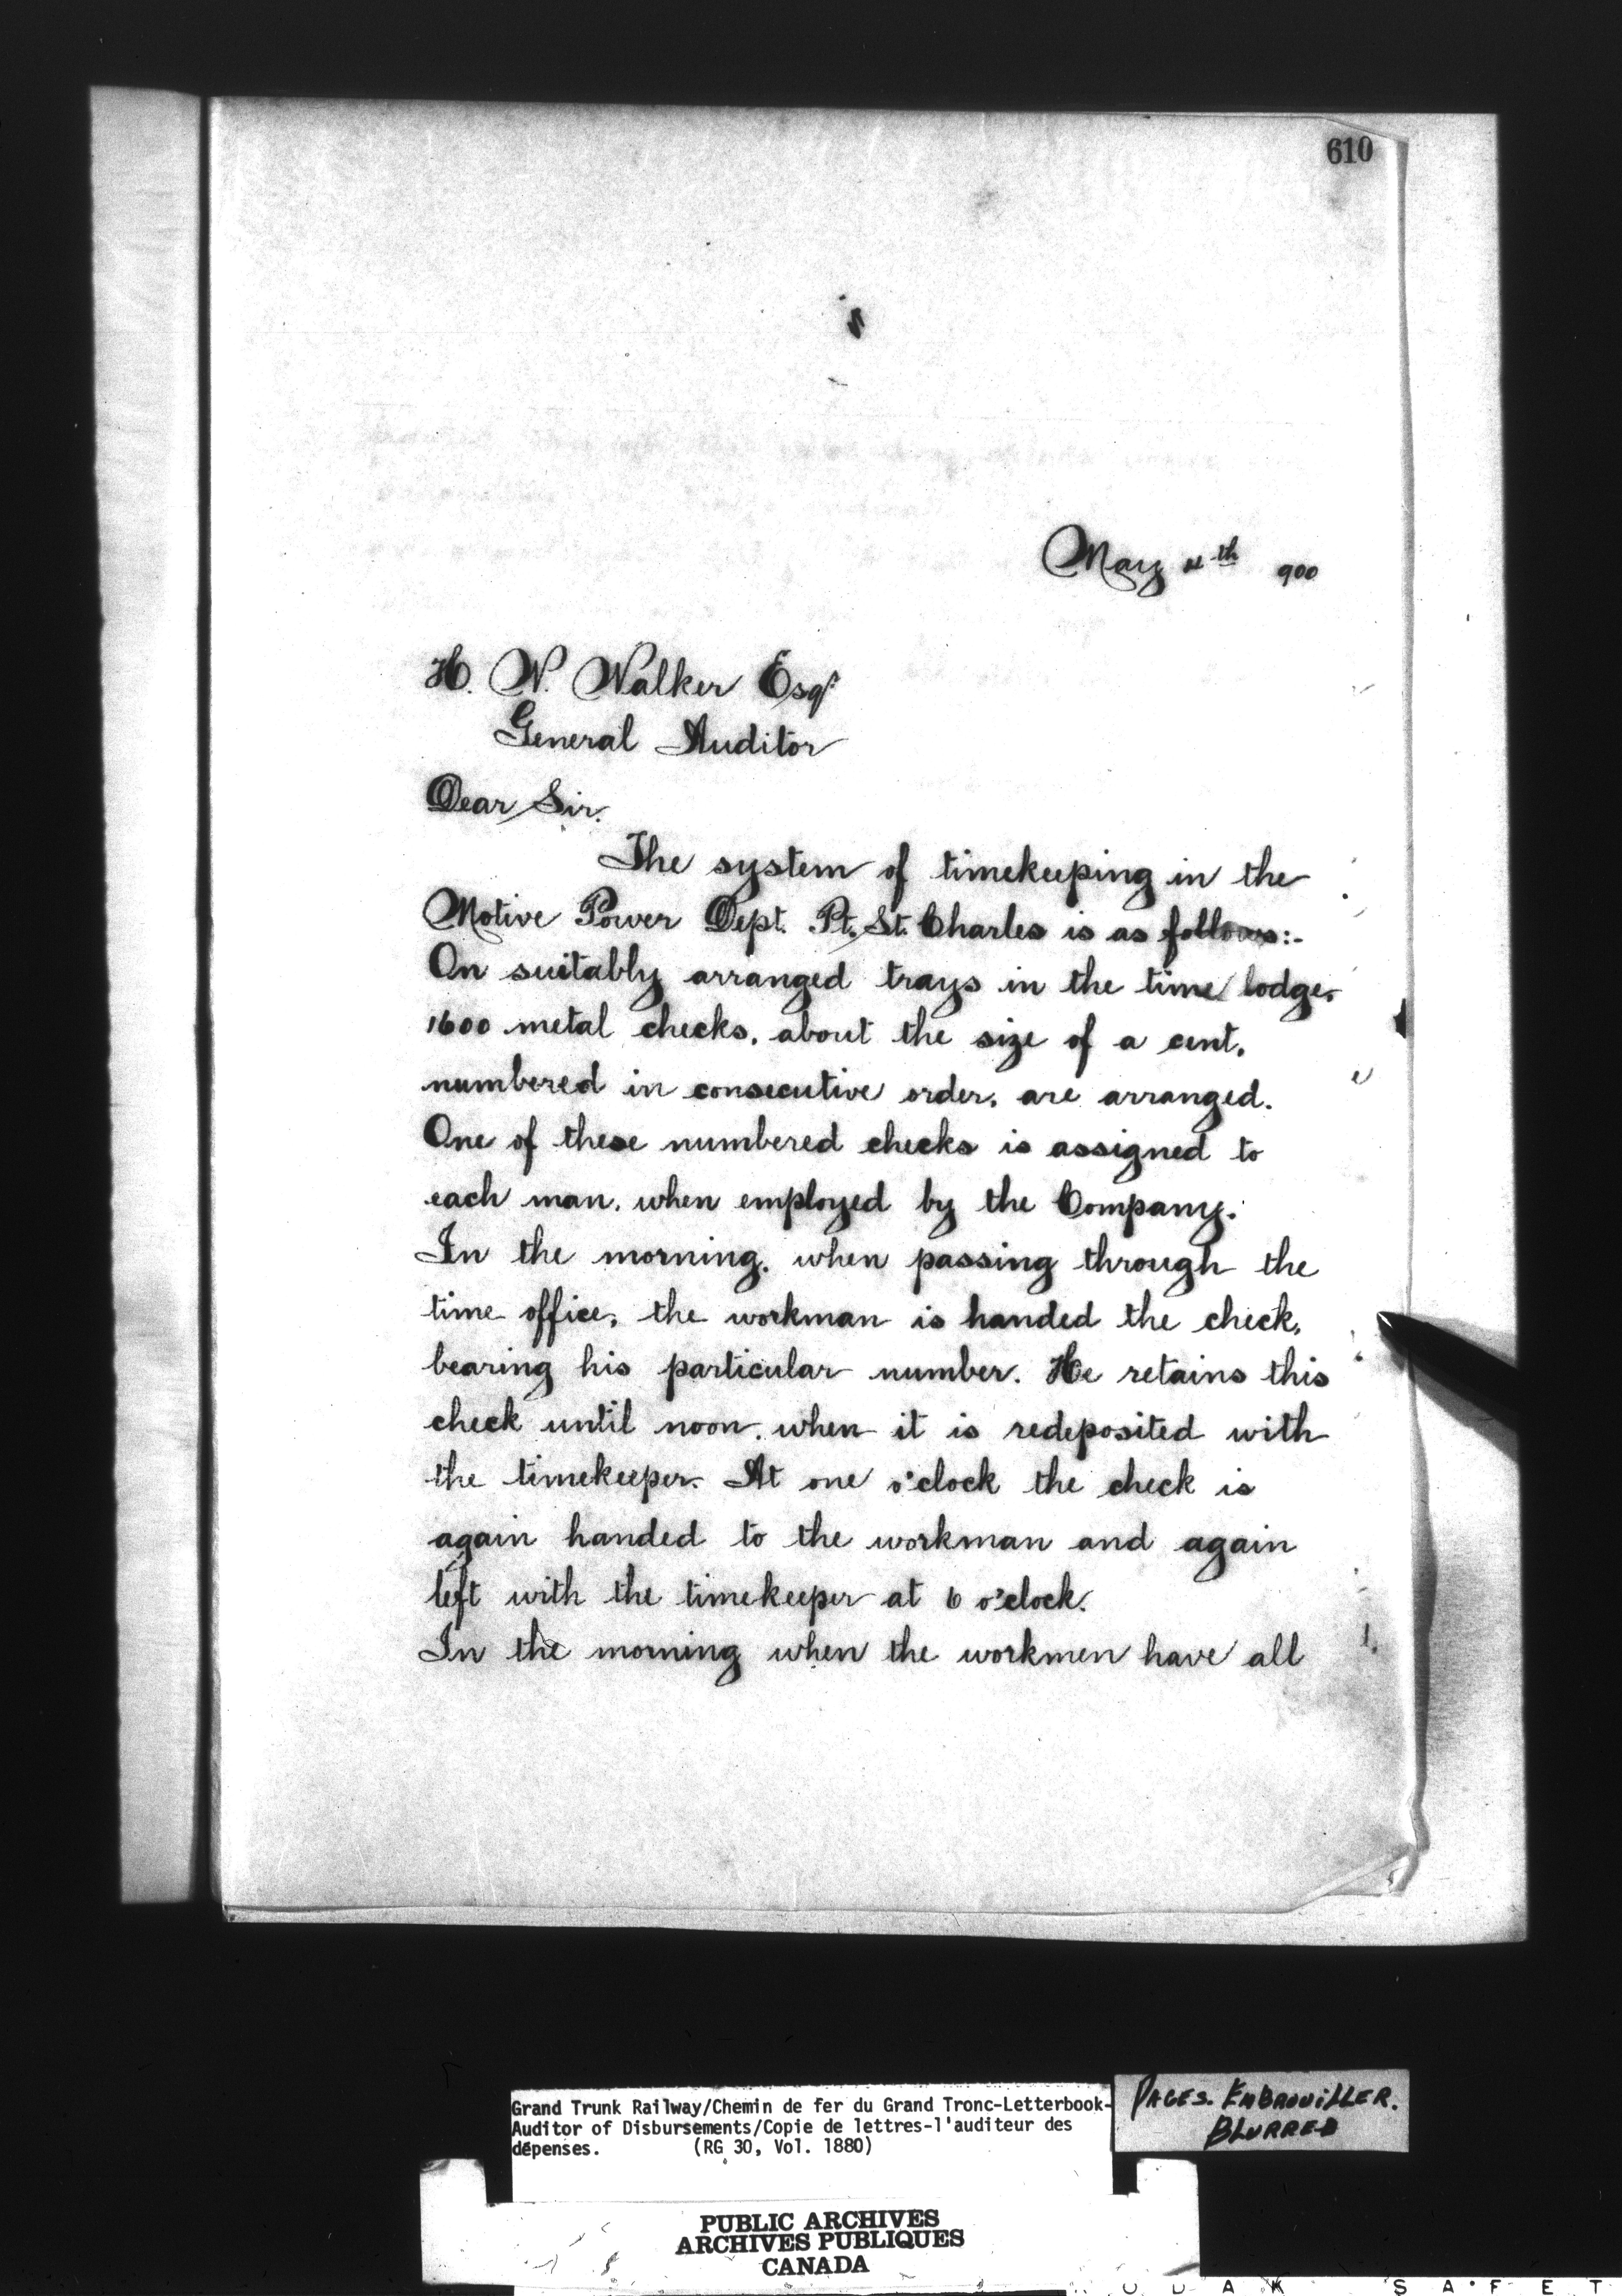 610
May 4th 900
H. W. Walker Esqr
General Auditor
Dear Sir.
The system of timekeeping in the
Motive Power Dept. Pt. St. Charles is as follows:-
On suitably arranged trays in the time lodge,
1600 metal checks, about the size of a cent,
numbered in consecutive order, are arranged.
One of these numbered checks is assigned to
each man, when employed by the Company.
In the morning, when passing through the
time office, the workman is handed the check,
bearing his particular number. He retains this
check until noon, when it is redeposited with
the timekeeper. At one o'clock the check is
again handed to the workman and again
left with the timekeeper at 6 o'clock.
In the morning when the workmen have all
Grand Trunk Railway/Chemin de fer du Grand Tronc-Letterbook-
Auditor of Disbursements/Copie de lettres-l'auditeur des
dépenses. (RG 30, Vol. 1880)
PAGES. EMBROUILLER.
BLURRED
PUBLIC ARCHIVES
ARCHIVES PUBLIQUES
CANADA